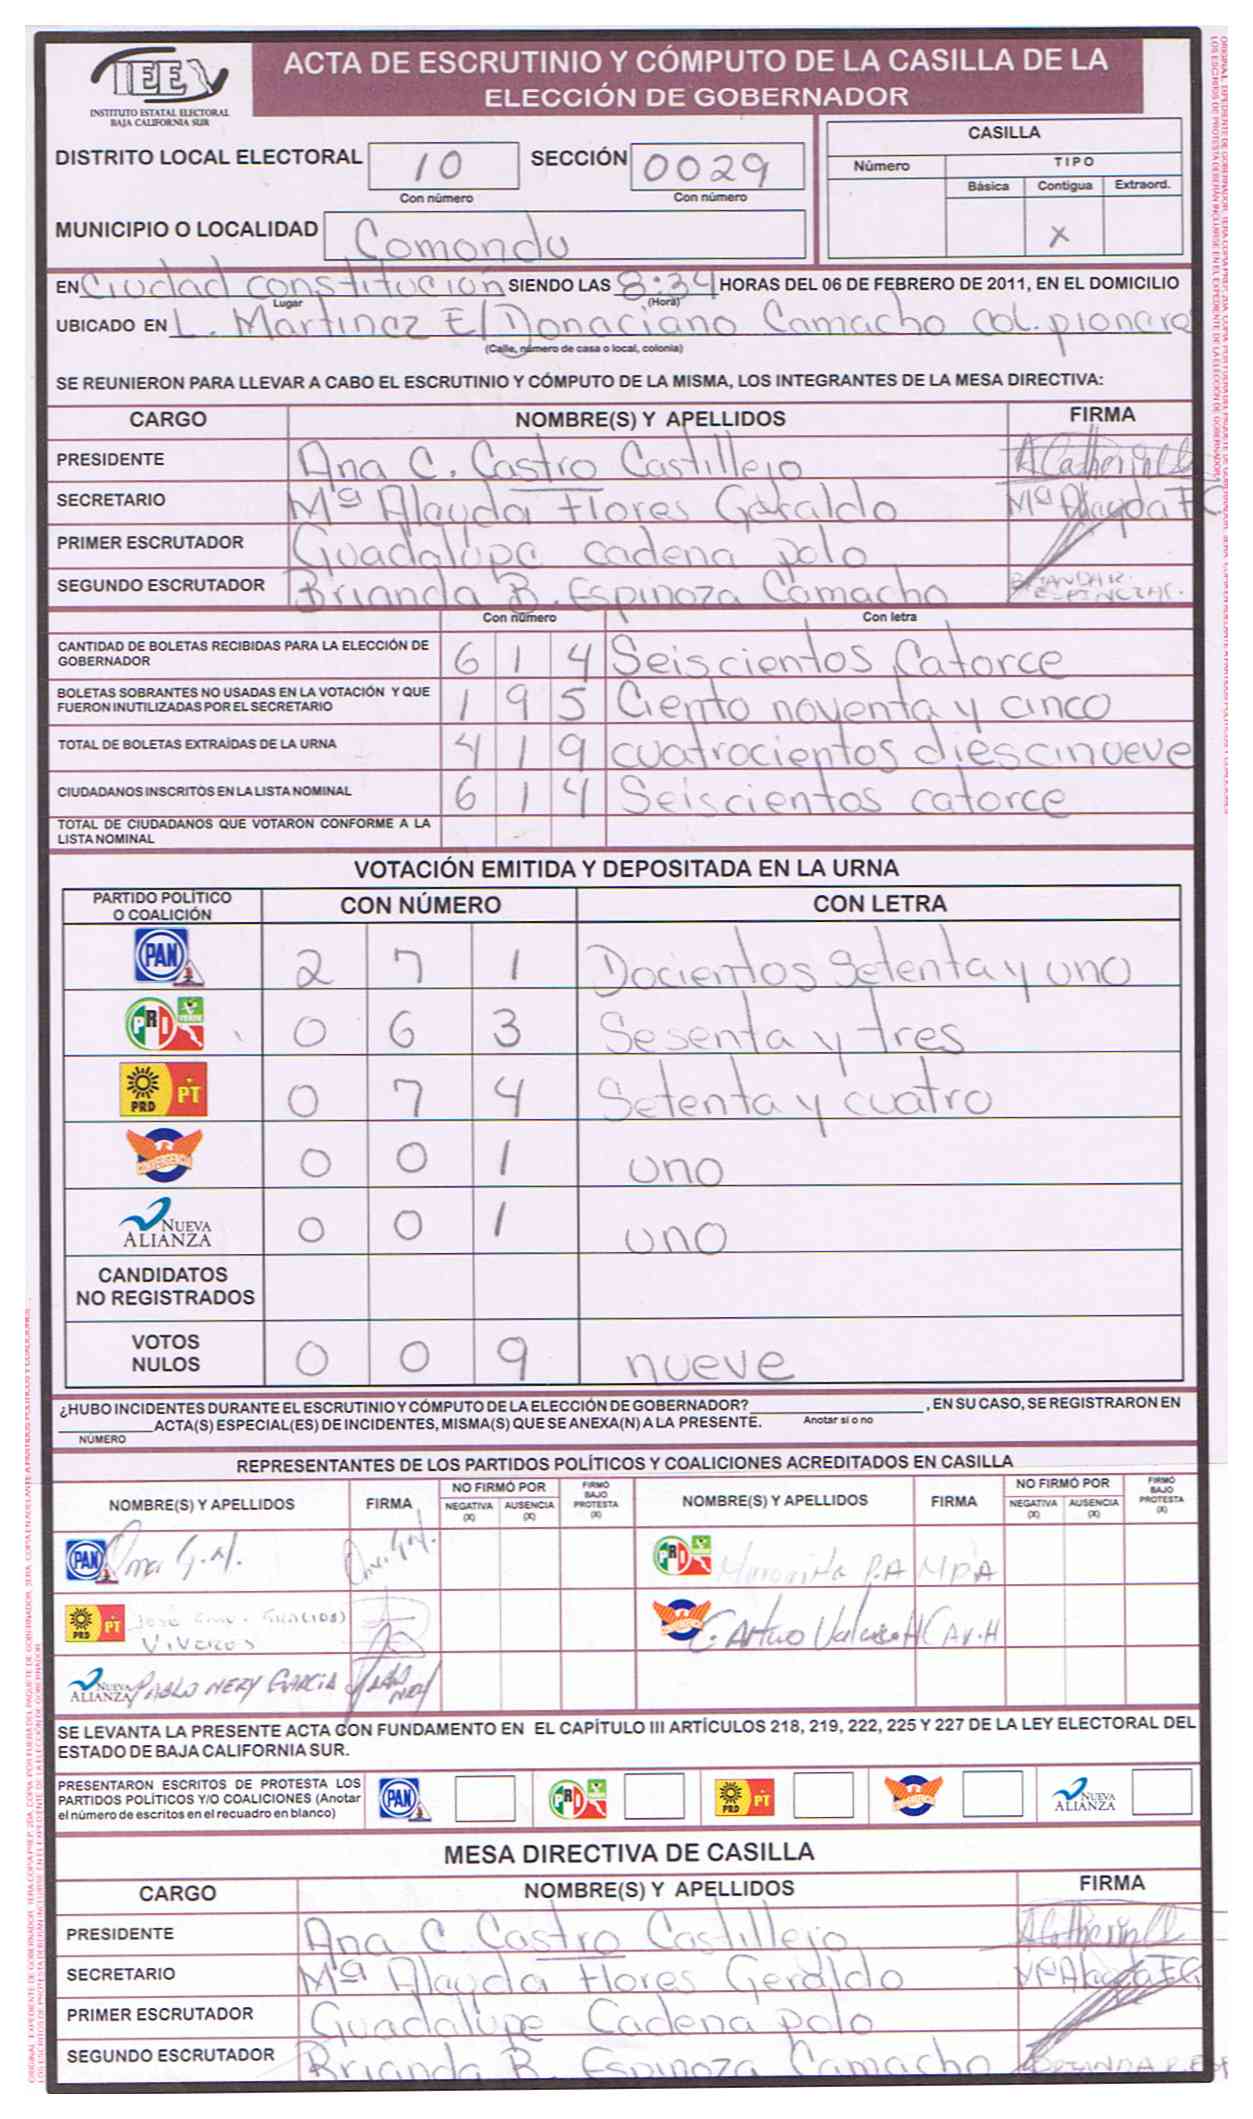 IEE
INSTITUTO ESTATAL ELECTORAL
BAJA CALIFORNIA SUR
ACTA DE ESCRUTINIO Y CÓMPUTO DE LA CASILLA DE LA
ELECCIÓN DE GOBERNADOR
DISTRITO LOCAL ELECTORAL 10 SECCIÓN 0029
Con número Con número
CASILLA
Número TIPO
Básica Contigua Extraord.
X
MUNICIPIO O LOCALIDAD Comondu
EN Ciudad constitución SIENDO LAS 8:34 HORAS DEL 06 DE FEBRERO DE 2011, EN EL DOMICILIO
Lugar (Hora)
UBICADO EN L. Martinez E/ Donaciano Camacho col. pionera
(Calle, número de casa o local, colonia)
SE REUNIERON PARA LLEVAR A CABO EL ESCRUTINIO Y CÓMPUTO DE LA MISMA, LOS INTEGRANTES DE LA MESA DIRECTIVA:
CARGO NOMBRE(S) Y APELLIDOS FIRMA
PRESIDENTE Ana C. Castro Castillejo
SECRETARIO Mª Alayda Flores Geraldo Mª Alayda F G
PRIMER ESCRUTADOR Guadalupe cadena polo
SEGUNDO ESCRUTADOR Brianda B. Espinoza Camacho
Con número Con letra
CANTIDAD DE BOLETAS RECIBIDAS PARA LA ELECCIÓN DE
GOBERNADOR 6 1 4 Seiscientos Catorce
BOLETAS SOBRANTES NO USADAS EN LA VOTACIÓN Y QUE
FUERON INUTILIZADAS POR EL SECRETARIO 1 9 5 Ciento noventa y cinco
TOTAL DE BOLETAS EXTRAÍDAS DE LA URNA 4 1 9 cuatrocientos diescinueve
CIUDADANOS INSCRITOS EN LA LISTA NOMINAL 6 1 4 Seiscientos catorce
TOTAL DE CIUDADANOS QUE VOTARON CONFORME A LA
LISTA NOMINAL
VOTACIÓN EMITIDA Y DEPOSITADA EN LA URNA
PARTIDO POLÍTICO
O COALICIÓN CON NÚMERO CON LETRA
PAN 2 7 1 Docientos Setenta y uno
PRI VERDE 0 6 3 Sesenta y tres
PRD PT 0 7 4 Setenta y cuatro
CONVERGENCIA 0 0 1 uno
NUEVA ALIANZA 0 0 1 uno
CANDIDATOS
NO REGISTRADOS
VOTOS
NULOS 0 0 9 nueve
¿HUBO INCIDENTES DURANTE EL ESCRUTINIO Y CÓMPUTO DE LA ELECCIÓN DE GOBERNADOR? , EN SU CASO, SE REGISTRARON EN
Anotar si o no
ACTA(S) ESPECIAL(ES) DE INCIDENTES, MISMA(S) QUE SE ANEXA(N) A LA PRESENTE.
NÚMERO
REPRESENTANTES DE LOS PARTIDOS POLÍTICOS Y COALICIONES ACREDITADOS EN CASILLA
NOMBRE(S) Y APELLIDOS FIRMA NO FIRMÓ POR NEGATIVA (X) AUSENCIA (X) FIRMÓ BAJO PROTESTA (X) NOMBRE(S) Y APELLIDOS FIRMA NO FIRMÓ POR NEGATIVA (X) AUSENCIA (X) FIRMÓ BAJO PROTESTA (X)
PAN G.M. PRI VERDE Margarita P.A M P A
PRD PT José Viveros C. Arturo H
NUEVA ALIANZA PABLO NERY GARCIA
SE LEVANTA LA PRESENTE ACTA CON FUNDAMENTO EN EL CAPÍTULO III ARTÍCULOS 218, 219, 222, 225 Y 227 DE LA LEY ELECTORAL DEL
ESTADO DE BAJA CALIFORNIA SUR.
PRESENTARON ESCRITOS DE PROTESTA LOS
PARTIDOS POLÍTICOS Y/O COALICIONES (Anotar
el número de escritos en el recuadro en blanco) PAN PRI VERDE PRD PT CONVERGENCIA NUEVA ALIANZA
MESA DIRECTIVA DE CASILLA
CARGO NOMBRE(S) Y APELLIDOS FIRMA
PRESIDENTE Ana C. Castro Castillejo
SECRETARIO Mª Alayda Flores Geraldo
PRIMER ESCRUTADOR Guadalupe Cadena polo
SEGUNDO ESCRUTADOR Brianda B. Espinoza Camacho